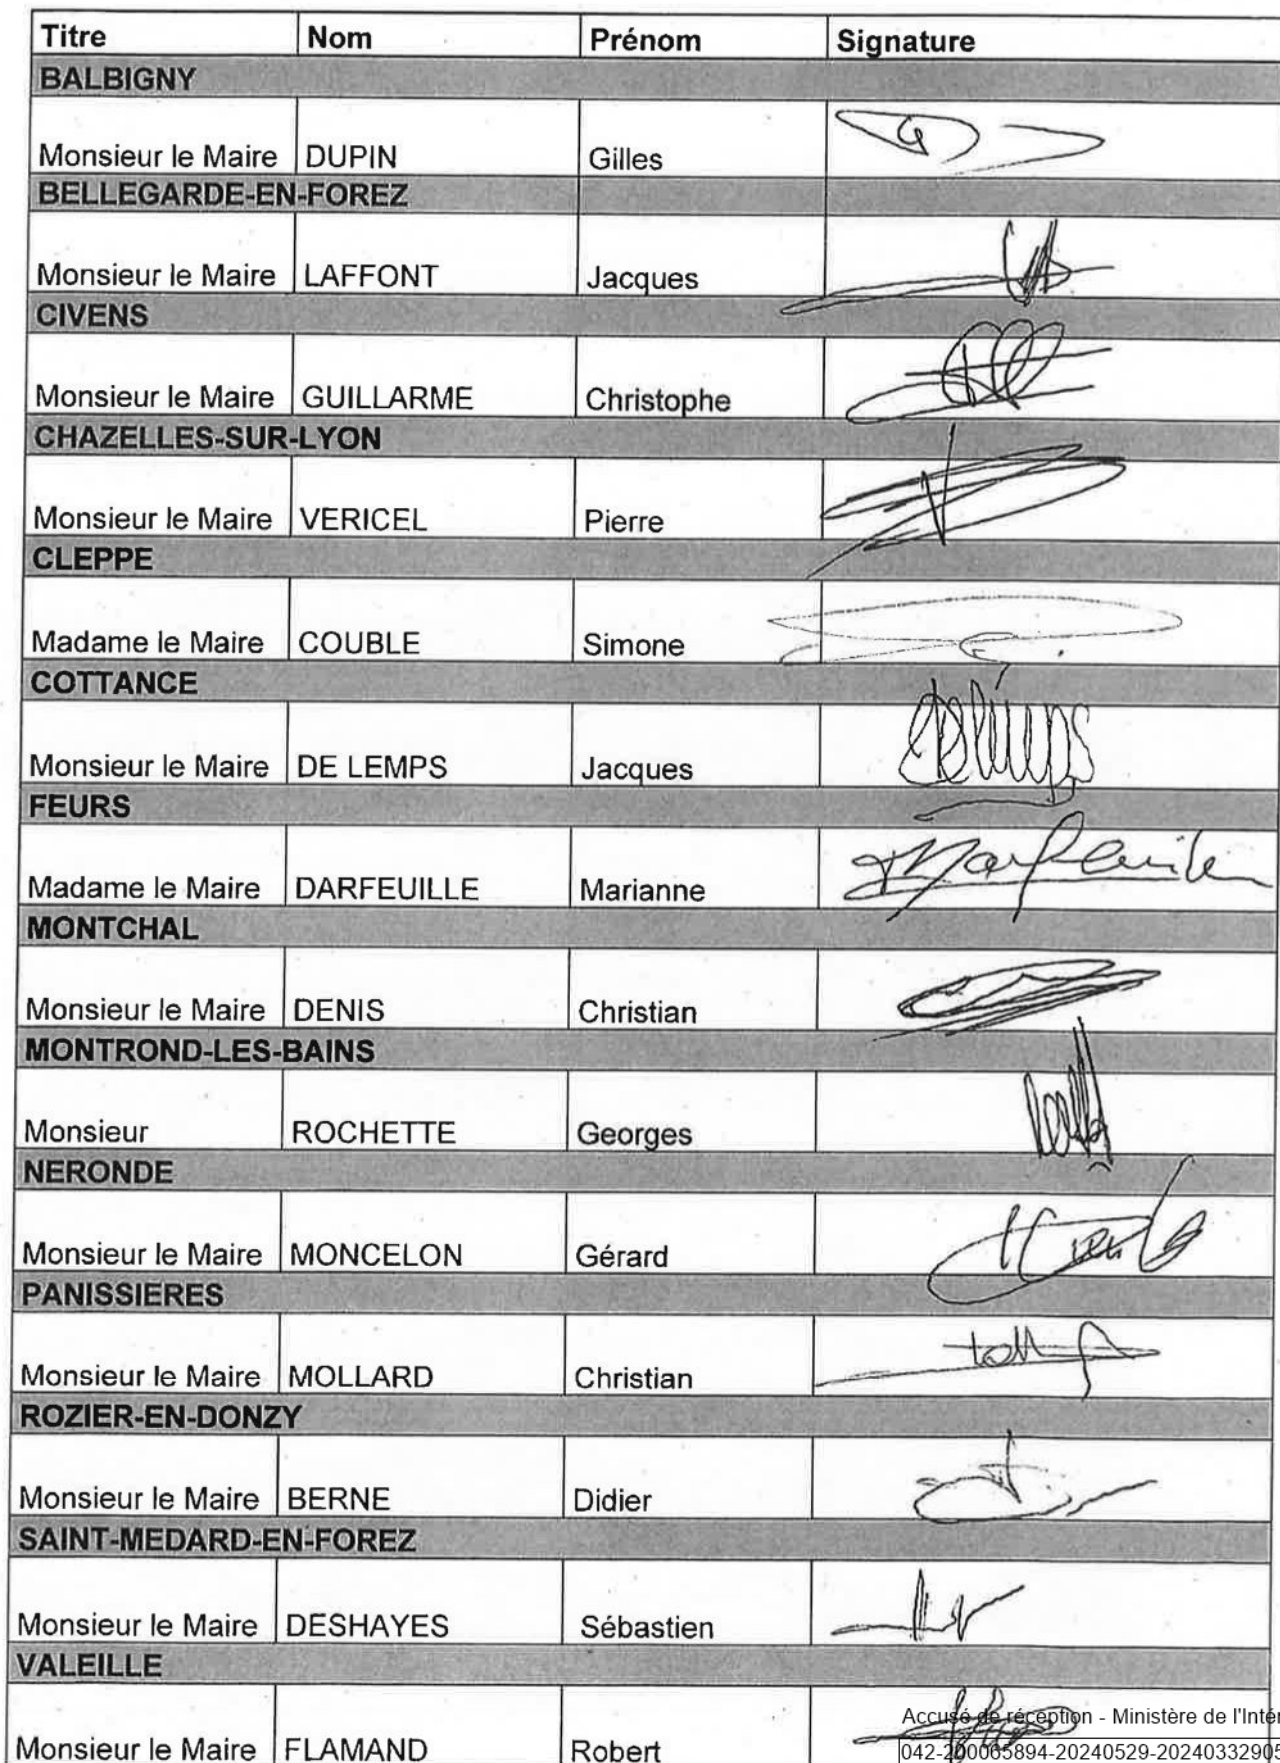 Titre Nom Prénom Signature
BALBIGNY
Monsieur le Maire DUPIN Gilles
BELLEGARDE-EN-FOREZ
Monsieur le Maire LAFFONT Jacques
CIVENS
Monsieur le Maire GUILLARME Christophe
CHAZELLES-SUR-LYON
Monsieur le Maire VERICEL Pierre
CLEPPE
Madame le Maire COUBLE Simone
COTTANCE
Monsieur le Maire DE LEMPS Jacques
FEURS
Madame le Maire DARFEUILLE Marianne
MONTCHAL
Monsieur le Maire DENIS Christian
MONTROND-LES-BAINS
Monsieur ROCHETTE Georges
NERONDE
Monsieur le Maire MONCELON Gérard
PANISSIERES
Monsieur le Maire MOLLARD Christian
ROZIER-EN-DONZY
Monsieur le Maire BERNE Didier
SAINT-MEDARD-EN-FOREZ
Monsieur le Maire DESHAYES Sébastien
VALEILLE
Accusé de réception - Ministère de l'Inté
Monsieur le Maire FLAMAND Robert
042-200065894-20240529-20240332905